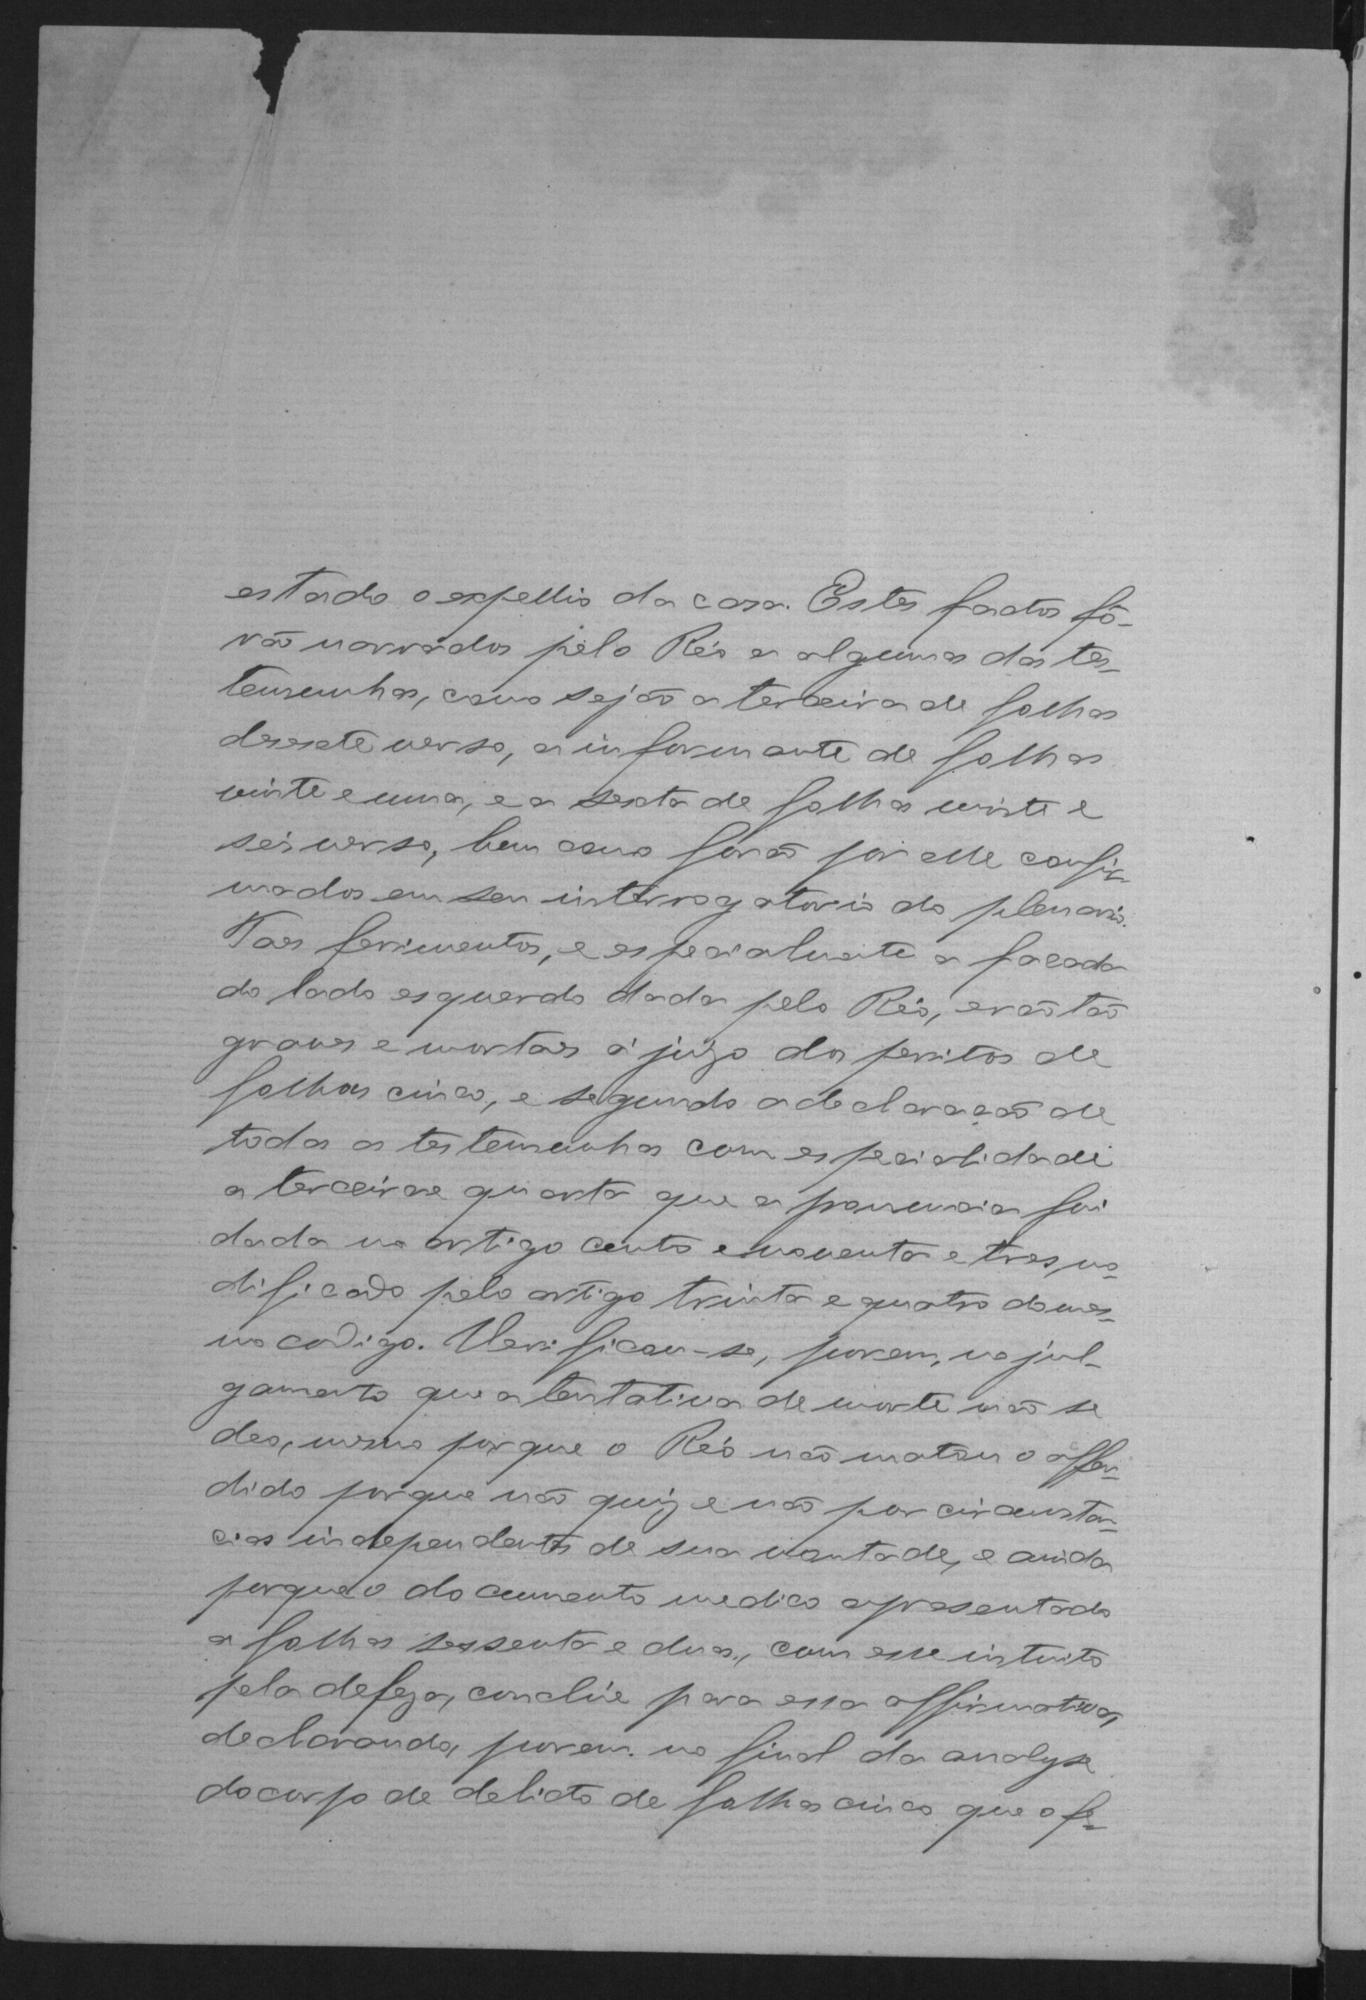 estado o expellio da casa. Estes factos fô-
rão narrados pelo Réo e algumas das tes-
temunhas, como sejão a terceira de folhas
desesete verso, a informante de folhas
vinte e uma, e a sexta de folhas vinte e
seis verso, bem como forão por elle confir-
mados em seu interrogatorio do plenario.
Taes ferimentos, e especialmente a facada
do lado esquerdo dada pelo Réo, erão tão
graves e mortaes á juizo dos peritos de
folhas cinco, e segundo a declaração de
todas as testemunhas com especialidade
a terceira e quarta que a pronuncia foi
dada no artigo cento e noventa e tres mo-
dificado pelo artigo trinta e quatro do mes-
mo codigo. Verificou-se, porem, no jul-
gamento que a tentativa de morte não se
deo, mesmo porque o Réo não matou o offen-
dido porque não quiz e não por circunstan-
cias independentes de sua vontade, e ainda
porque o documento medico apresentado
a folhas sessenta e duas, com esse intuito
pela defeza, conclúe para essa affirmativa,
declarando, porem, no final da analyse
do corpo de delicto de folhas cinco que o fe-